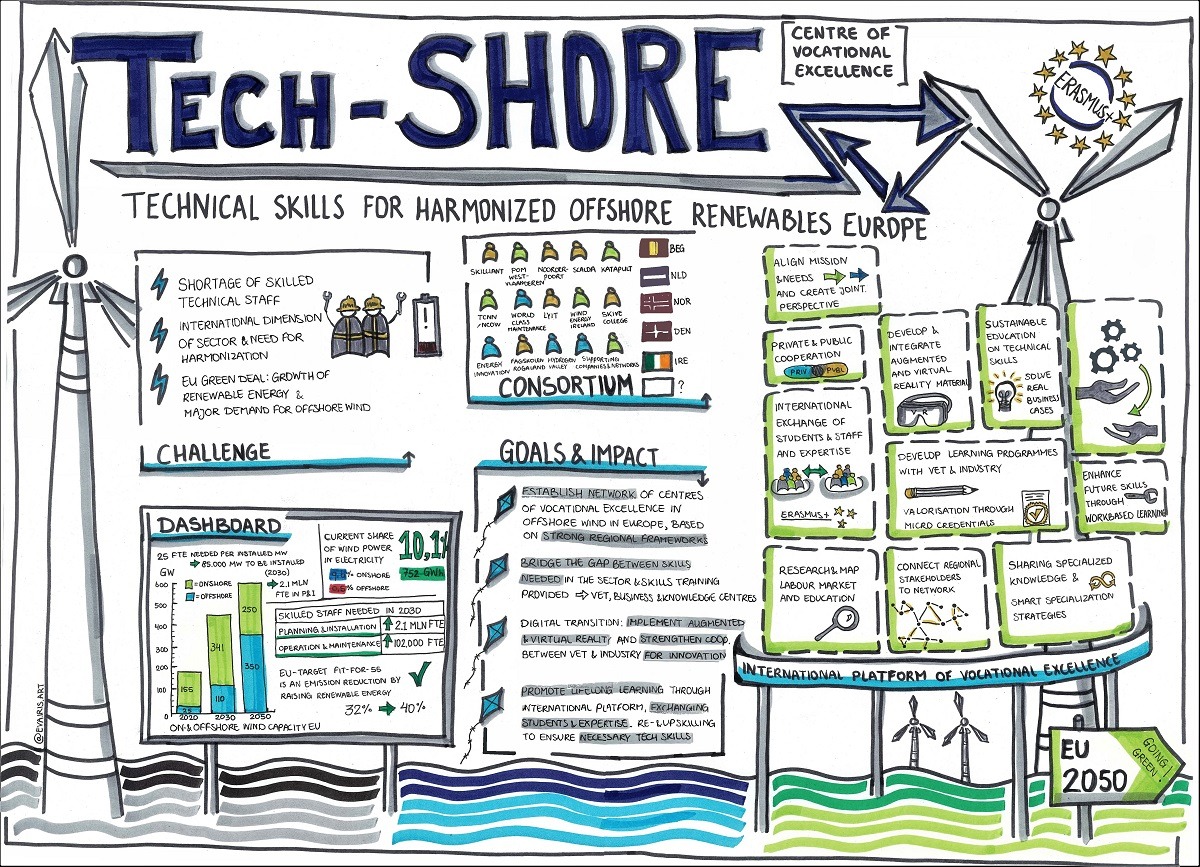 TECH-SHORE
CENTRE OF
VOCATIONAL
EXCELLENCE
ERASMUS+
TECHNICAL SKILLS FOR HARMONIZED OFFSHORE RENEWABLES EUROPE
SHORTAGE OF SKILLED
TECHNICAL STAFF
INTERNATIONAL DIMENSION
OF SECTOR & NEED FOR
HARMONIZATION
EU GREEN DEAL: GROWTH OF
RENEWABLE ENERGY &
MAJOR DEMAND FOR OFFSHORE WIND
CHALLENGE
SKILLIANT
POM
WEST-
VLAANDEREN
NOORDER-
POORT
SCALDA
KATAPULT
TCNN
/NCOW
WORLD
CLASS
MAINTENANCE
LYIT
WIND
ENERGY
IRELAND
SKIVE
COLLEGE
ENERGY
INNOVATION
FAGSKOLEN
ROGALAND
HYDROGEN
VALLEY
SUPPORTING
COMPANIES & NETWORKS
BEG
NLD
NOR
DEN
IRE
?
CONSORTIUM
GOALS & IMPACT
ESTABLISH NETWORK OF CENTRES
OF VOCATIONAL EXCELLENCE IN
OFFSHORE WIND IN EUROPE, BASED
ON STRONG REGIONAL FRAMEWORKS
BRIDGE THE GAP BETWEEN SKILLS
NEEDED IN THE SECTOR & SKILLS TRAINING
PROVIDED ⇒ VET, BUSINESS & KNOWLEDGE CENTRES
DIGITAL TRANSITION: IMPLEMENT AUGMENTED
& VIRTUAL REALITY AND STRENGTHEN COOP.
BETWEEN VET & INDUSTRY FOR INNOVATION
PROMOTE LIFELONG LEARNING THROUGH
INTERNATIONAL PLATFORM, EXCHANGING
STUDENTS & EXPERTISE. RE- & UPSKILLING
TO ENSURE NECESSARY TECH SKILLS
DASHBOARD
25 FTE NEEDED PER INSTALLED MW
→ 85.000 MW TO BE INSTALLED
(2030)
→ 2.1 MLN
FTE IN P&I
GW
600
500
400
300
200
100
0
=ONSHORE
=OFFSHORE
165
25
341
110
250
350
2020
2030
2050
ON & OFFSHORE WIND CAPACITY EU
CURRENT SHARE
OF WIND POWER
IN ELECTRICITY
10,1%
752 GWh
ONSHORE
OFFSHORE
SKILLED STAFF NEEDED IN 2030
PLANNING & INSTALLATION ↑ 2.1 MLN FTE
OPERATION & MAINTENANCE ↑ 102,000 FTE
EU-TARGET FIT-FOR-55
IS AN EMISSION REDUCTION BY
RAISING RENEWABLE ENERGY
32% → 40%
ALIGN MISSION
& NEEDS
AND CREATE JOINT
PERSPECTIVE
PRIVATE & PUBLIC
COOPERATION
PRIV
PUBL
DEVELOP &
INTEGRATE
AUGMENTED
AND VIRTUAL
REALITY MATERIAL
VR
SUSTAINABLE
EDUCATION
ON TECHNICAL
SKILLS
SOLVE
REAL
BUSINESS
CASES
INTERNATIONAL
EXCHANGE OF
STUDENTS & STAFF
AND EXPERTISE
ERASMUS+
DEVELOP LEARNING PROGRAMMES
WITH VET & INDUSTRY
VALORISATION THROUGH
MICRO CREDENTIALS
ENHANCE
FUTURE SKILLS
THROUGH
WORKBASED LEARNING
RESEARCH & MAP
LABOUR MARKET
AND EDUCATION
CONNECT REGIONAL
STAKEHOLDERS
TO NETWORK
SHARING SPECIALIZED
KNOWLEDGE &
SMART SPECIALIZATION
STRATEGIES
INTERNATIONAL PLATFORM OF VOCATIONAL EXCELLENCE
EU
2050
GOING!
GREEN!
@EVAIRIS.ART